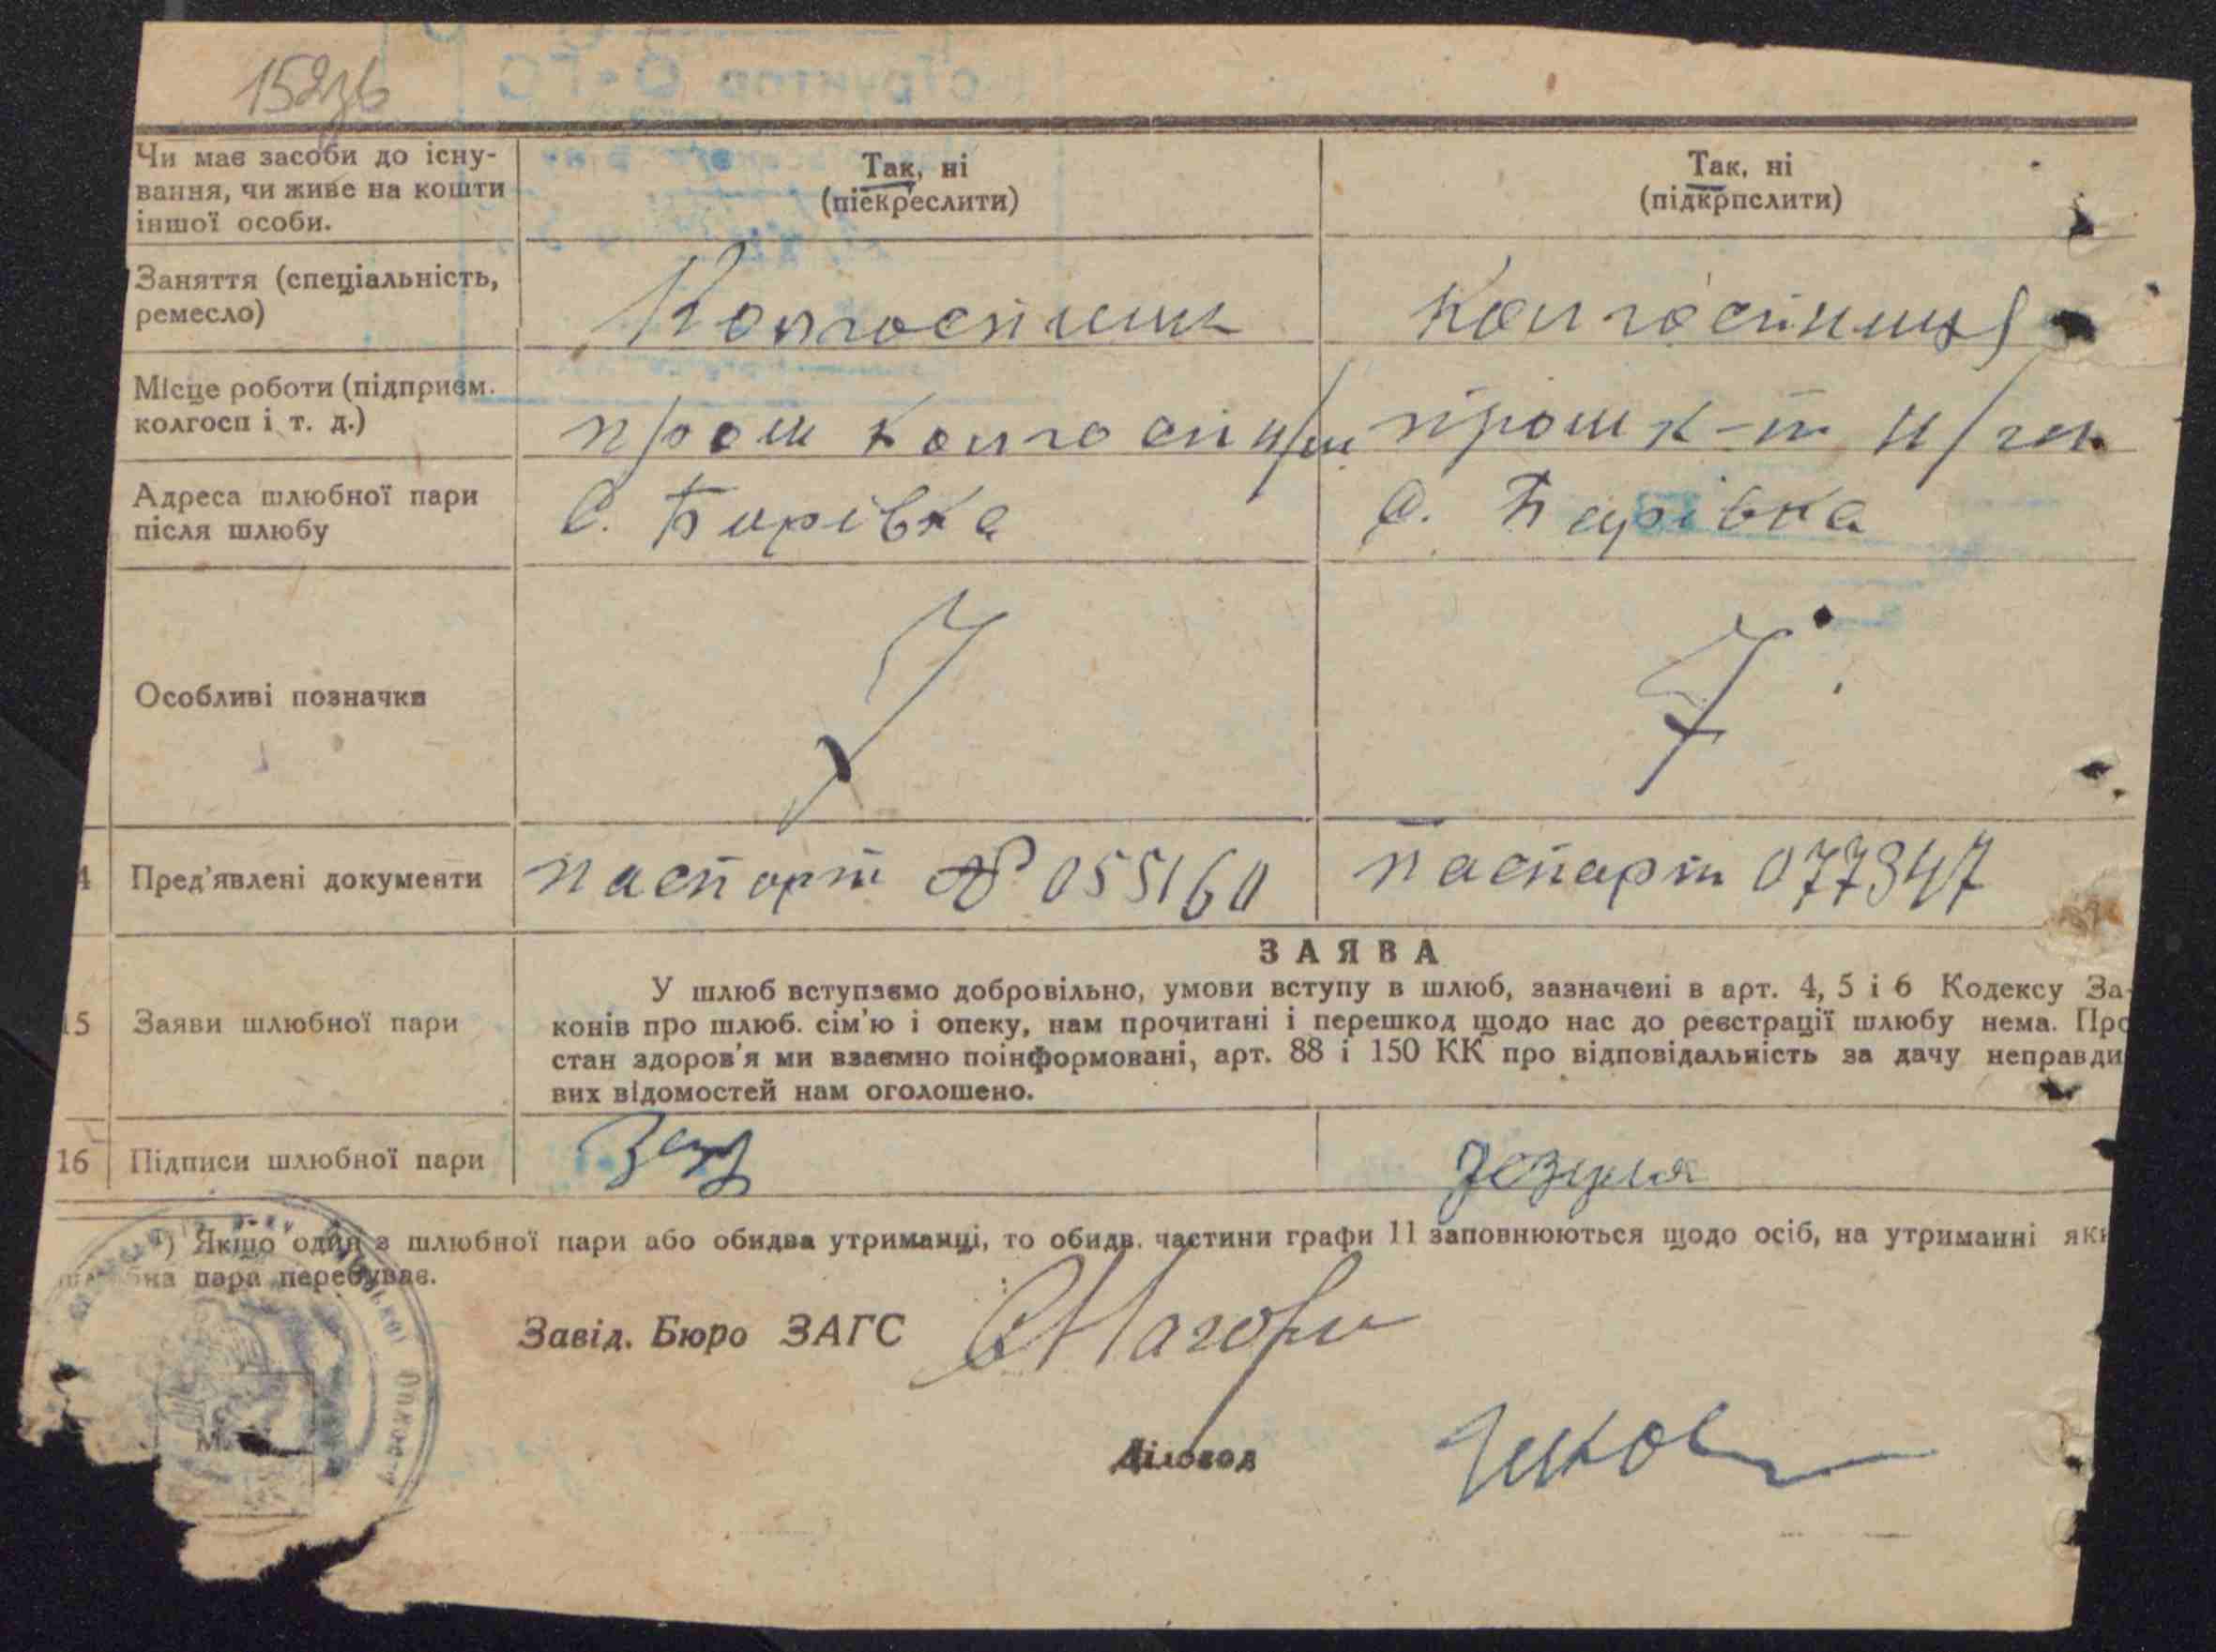 152зв
Чи має засоби до існу-
вання, чи живе на кошти
іншої особи.
Так, ні
(піекреслити)
Так, ні
(підкрпслити)
Заняття (спеціальність,
ремесло)
Колгоспник
Колгоспниця
Місце роботи (підприєм.
колгосп і т. д.)
пром колгосп
пром к-п
Адреса шлюбної пари
після шлюбу
С. Бирівка
С. Бирівка
Особливі позначки
4
Пред'явлені документи
паспорт № 055160
паспорт 077347
ЗАЯВА
15
Заяви шлюбної пари
У шлюб вступаємо добровільно, умови вступу в шлюб, зазначені в арт. 4, 5 і 6 Кодексу За-
конів про шлюб. сім'ю і опеку, нам прочитані і перешкод щодо нас до реєстрації шлюбу нема. Про
стан здоров'я ми взаємно поінформовані, арт. 88 і 150 КК про відповідальність за дачу неправди
вих відомостей нам оголошено.
16
Підписи шлюбної пари
) Якщо один з шлюбної пари або обидва утриманці, то обидв. частини графи 11 заповнюються щодо осіб, на утриманні яки
пара перебуває.
Завід. Бюро ЗАГС
Діловод